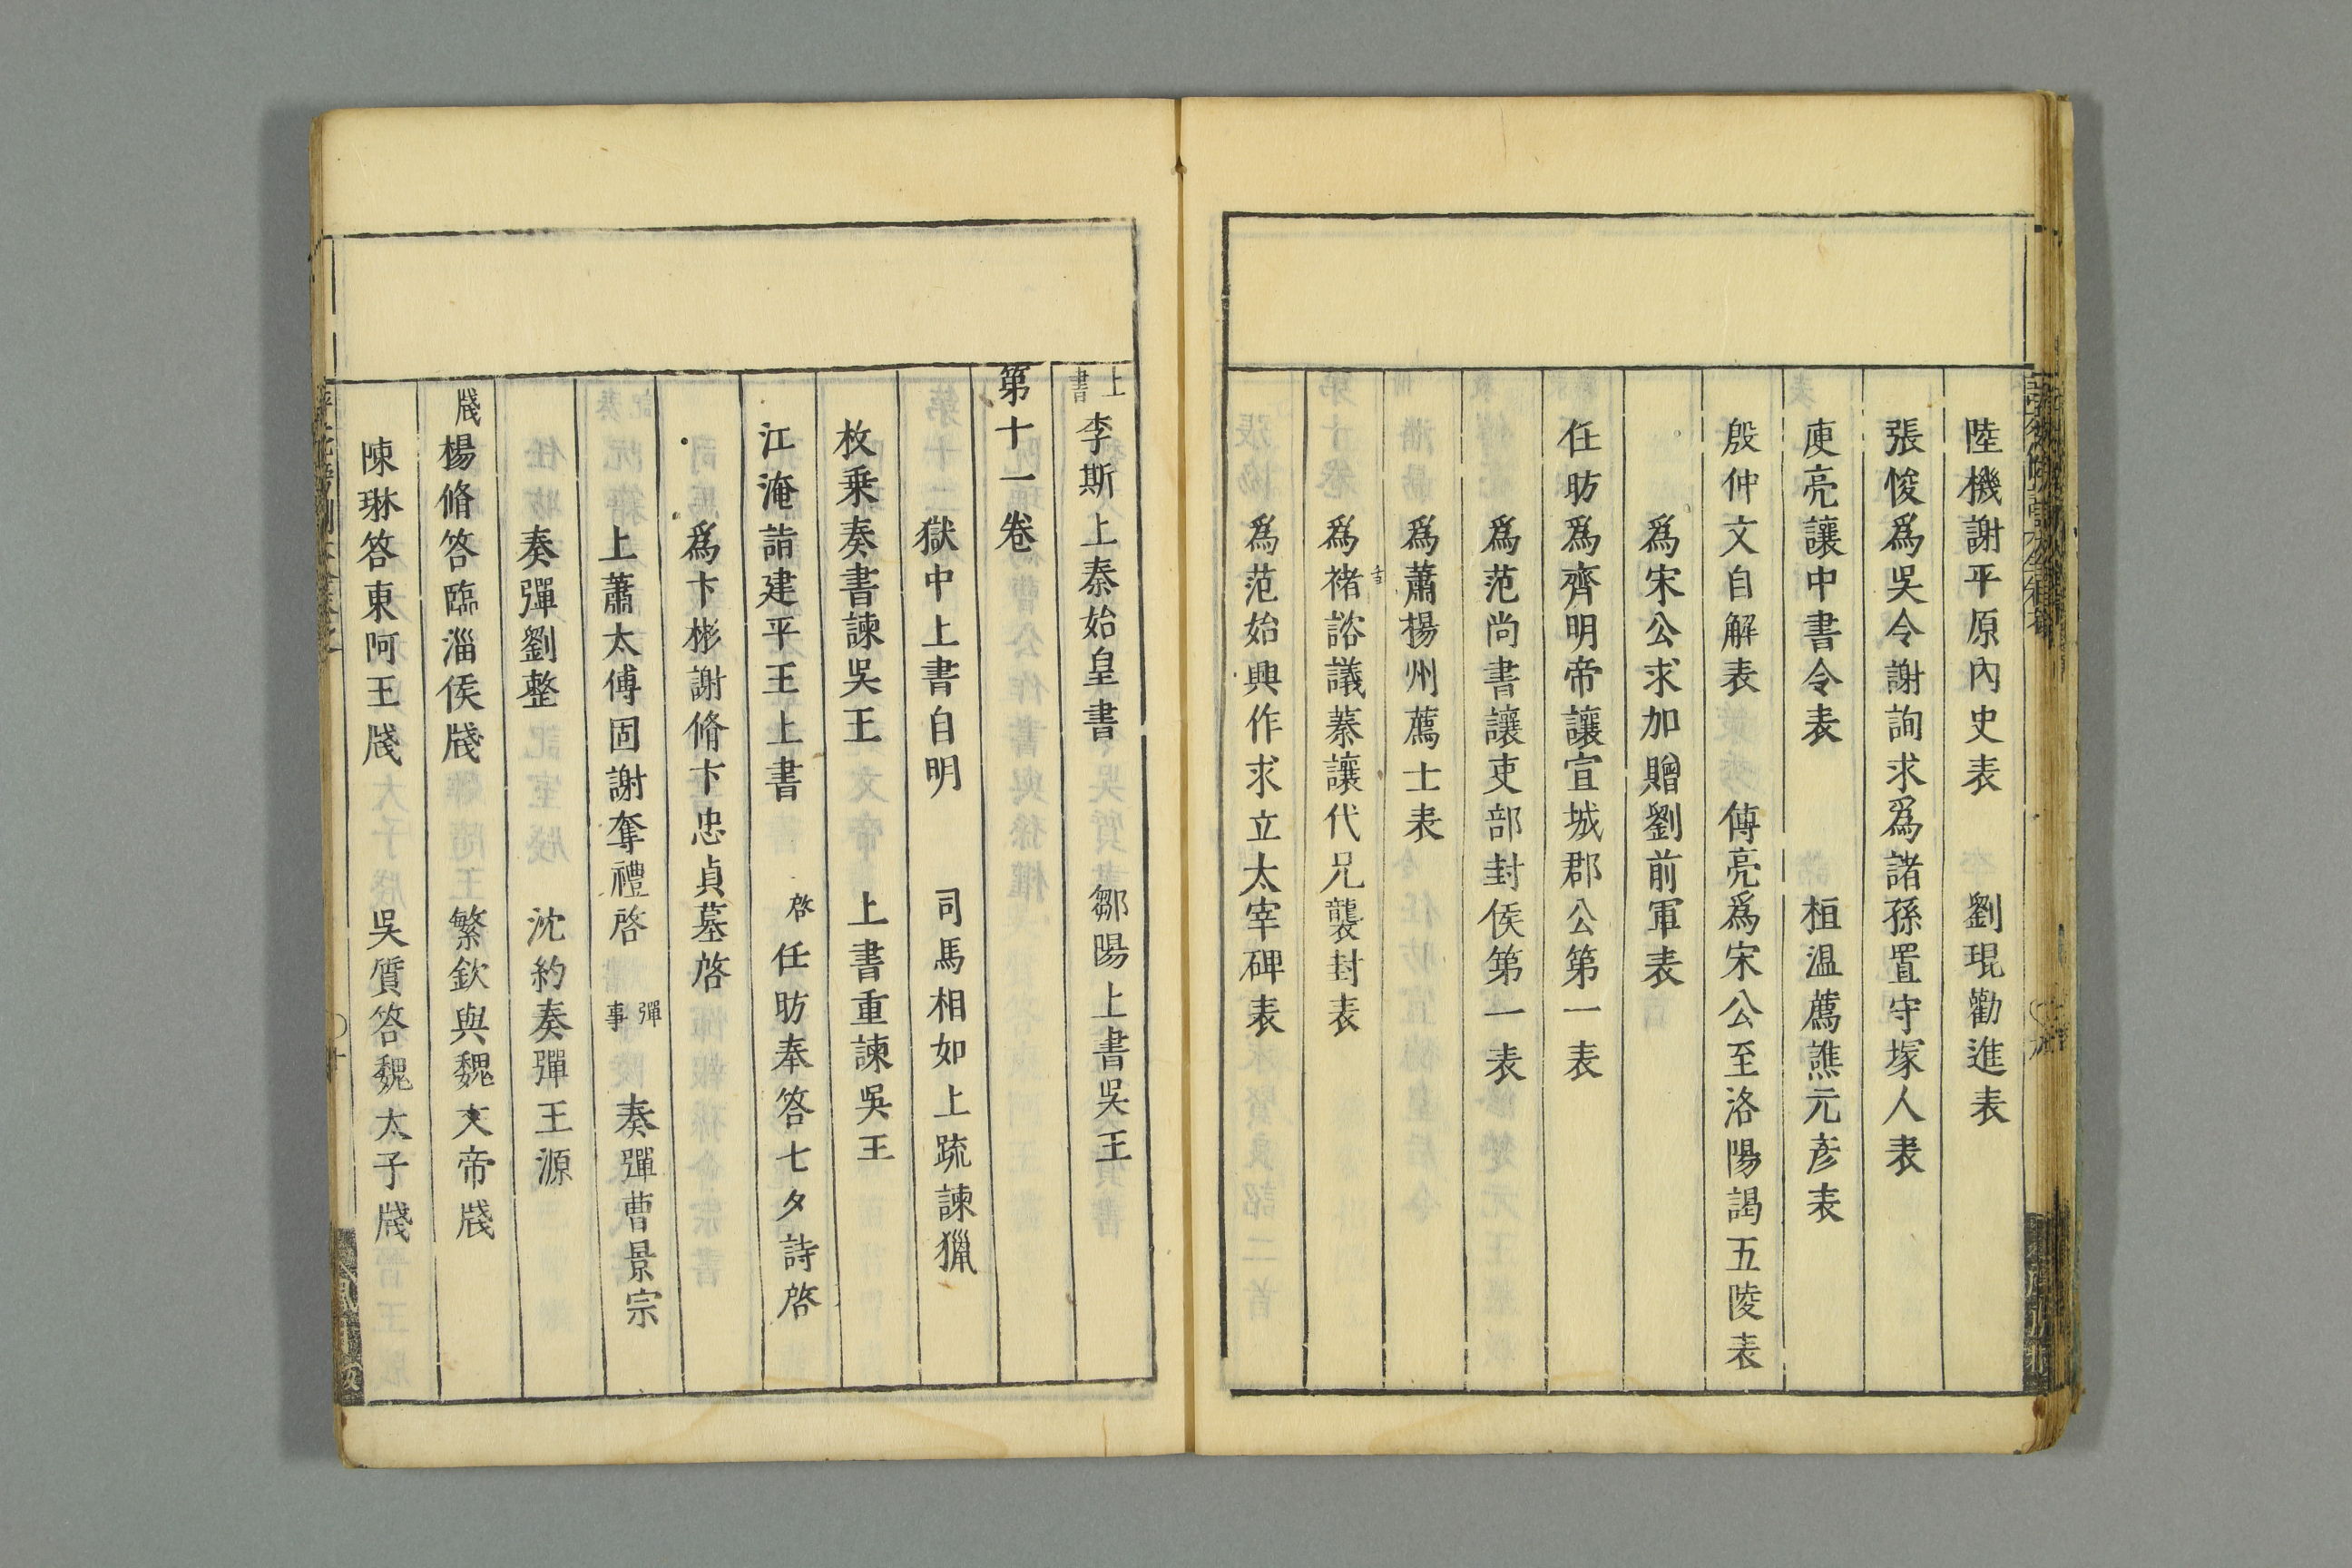 陸機謝平原內史表　劉琨勸進表
張悛爲吳令謝詢求爲諸孫置守塚人表
庾亮讓中書令表　桓温薦譙元彥表
殷仲文自解表　傅亮爲宋公至洛陽謁五陵表
爲宋公求加贈劉前軍表
任昉爲齊明帝讓宣城郡公第一表
爲范尚書讓吏部封侯第一表
爲蕭揚州薦士表
爲褚諮議蓁讓代兄襲封表
爲范始興作求立太宰碑表
上書　李斯上秦始皇書　鄒陽上書吳王
第十一卷
獄中上書自明　司馬相如上疏諫獵
枚乗奏書諫吳王　上書重諫吳王
江淹詣建平王上書　啓　任昉奉答七夕詩啓
爲卞彬謝脩卞忠貞墓啓
上蕭太傅固謝奪禮啓　彈事　奏彈曹景宗
奏彈劉整　沈約奏彈王源
牋　楊脩答臨淄侯牋　繁欽與魏文帝牋
陳琳答東阿王牋　吳質答魏太子牋